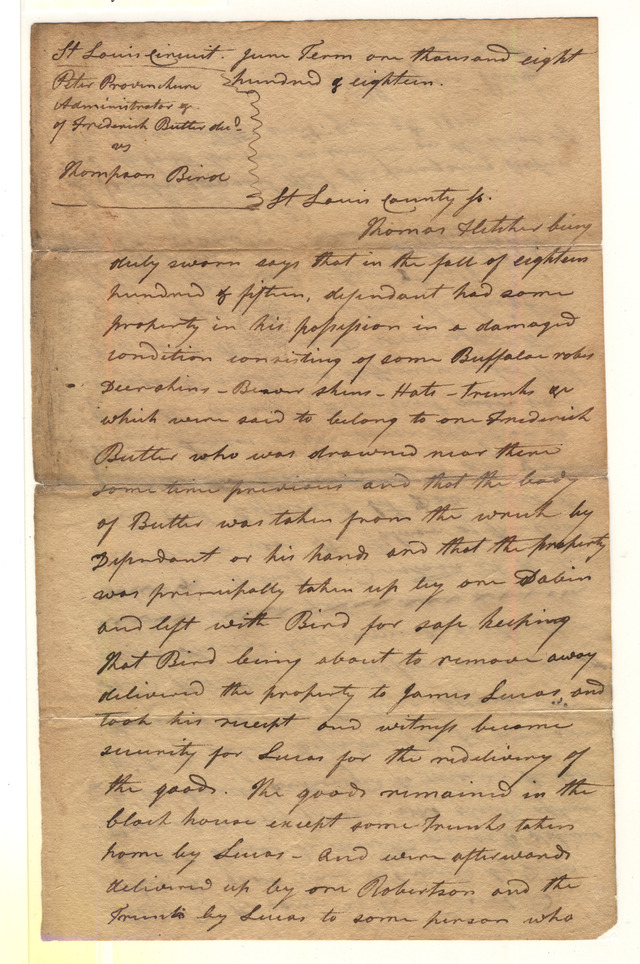 St Louis Circuit. June Term one thousand eight
hundred & eighteen.
Peter Provenchere
Administrator &c
of Frederick Butler decd
vs
Thompson Bird
St Louis County ss.
Thomas Fletcher being
duly sworn says that in the fall of eighteen
hundred & fifteen, defendant had some
property in his possession in a damaged
condition consisting of some Buffaloe robes
Deer-skins - Beaver skins - Hats - trunks &c
which were said to belong to one Frederick
Butler who was drowned near there
some time previous and that the body
of Butler was taken from the wreck by
Defendant or his hands and that the property
was principally taken up by one Dabin
and left with Bird for safe keeping
that Bird being about to remove away
delivered the property to James Lucas, and
took his receipt and witness became
security for Lucas for the redelivery of
the goods. The goods remained in the
block house except some trunks taken
home by Lucas - And were afterwards
delivered up by one Robertson and the
Trunks by Lucas to some person who